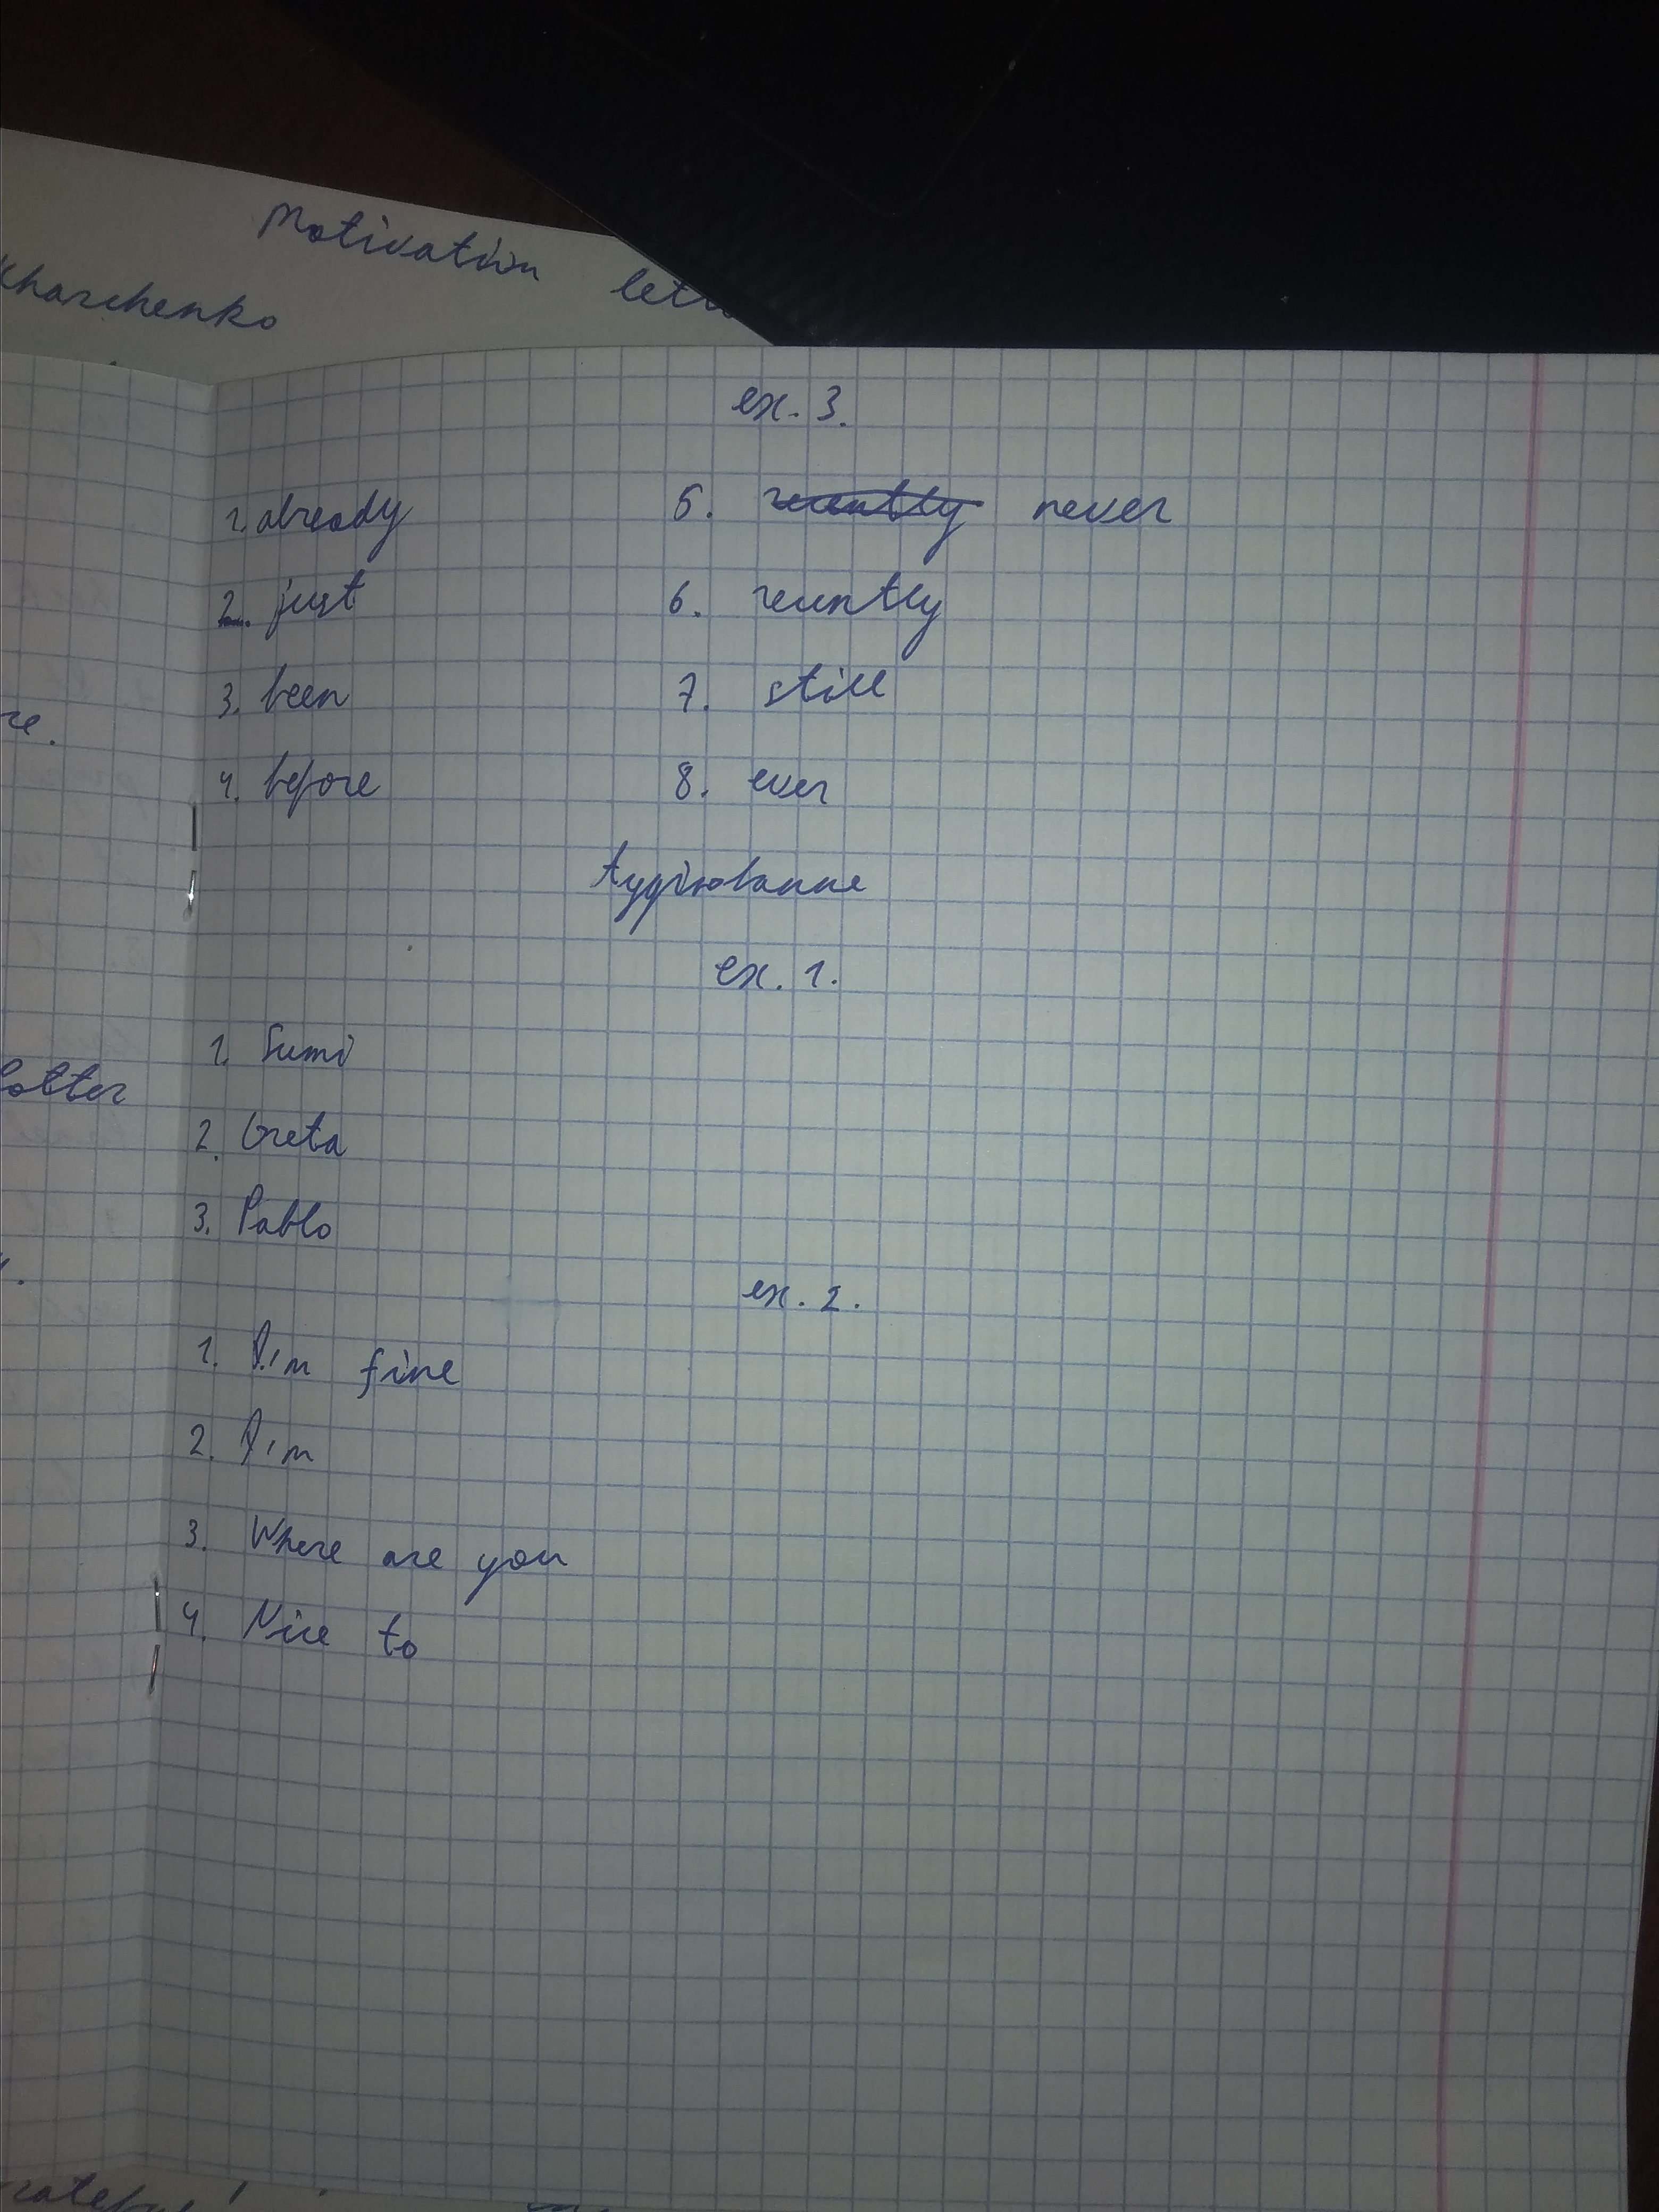 Motivation
Kharchenko
ex. 3.
1. already
2. just
3. been
4. before
5. ~~recently~~ never
6. recently
7. still
8. ever
Аудіювання
ex. 1.
1. Sumi
2. Greta
3. Pablo
ex. 2.
1. I'm fine
2. I'm
3. Where are you
4. Nice to